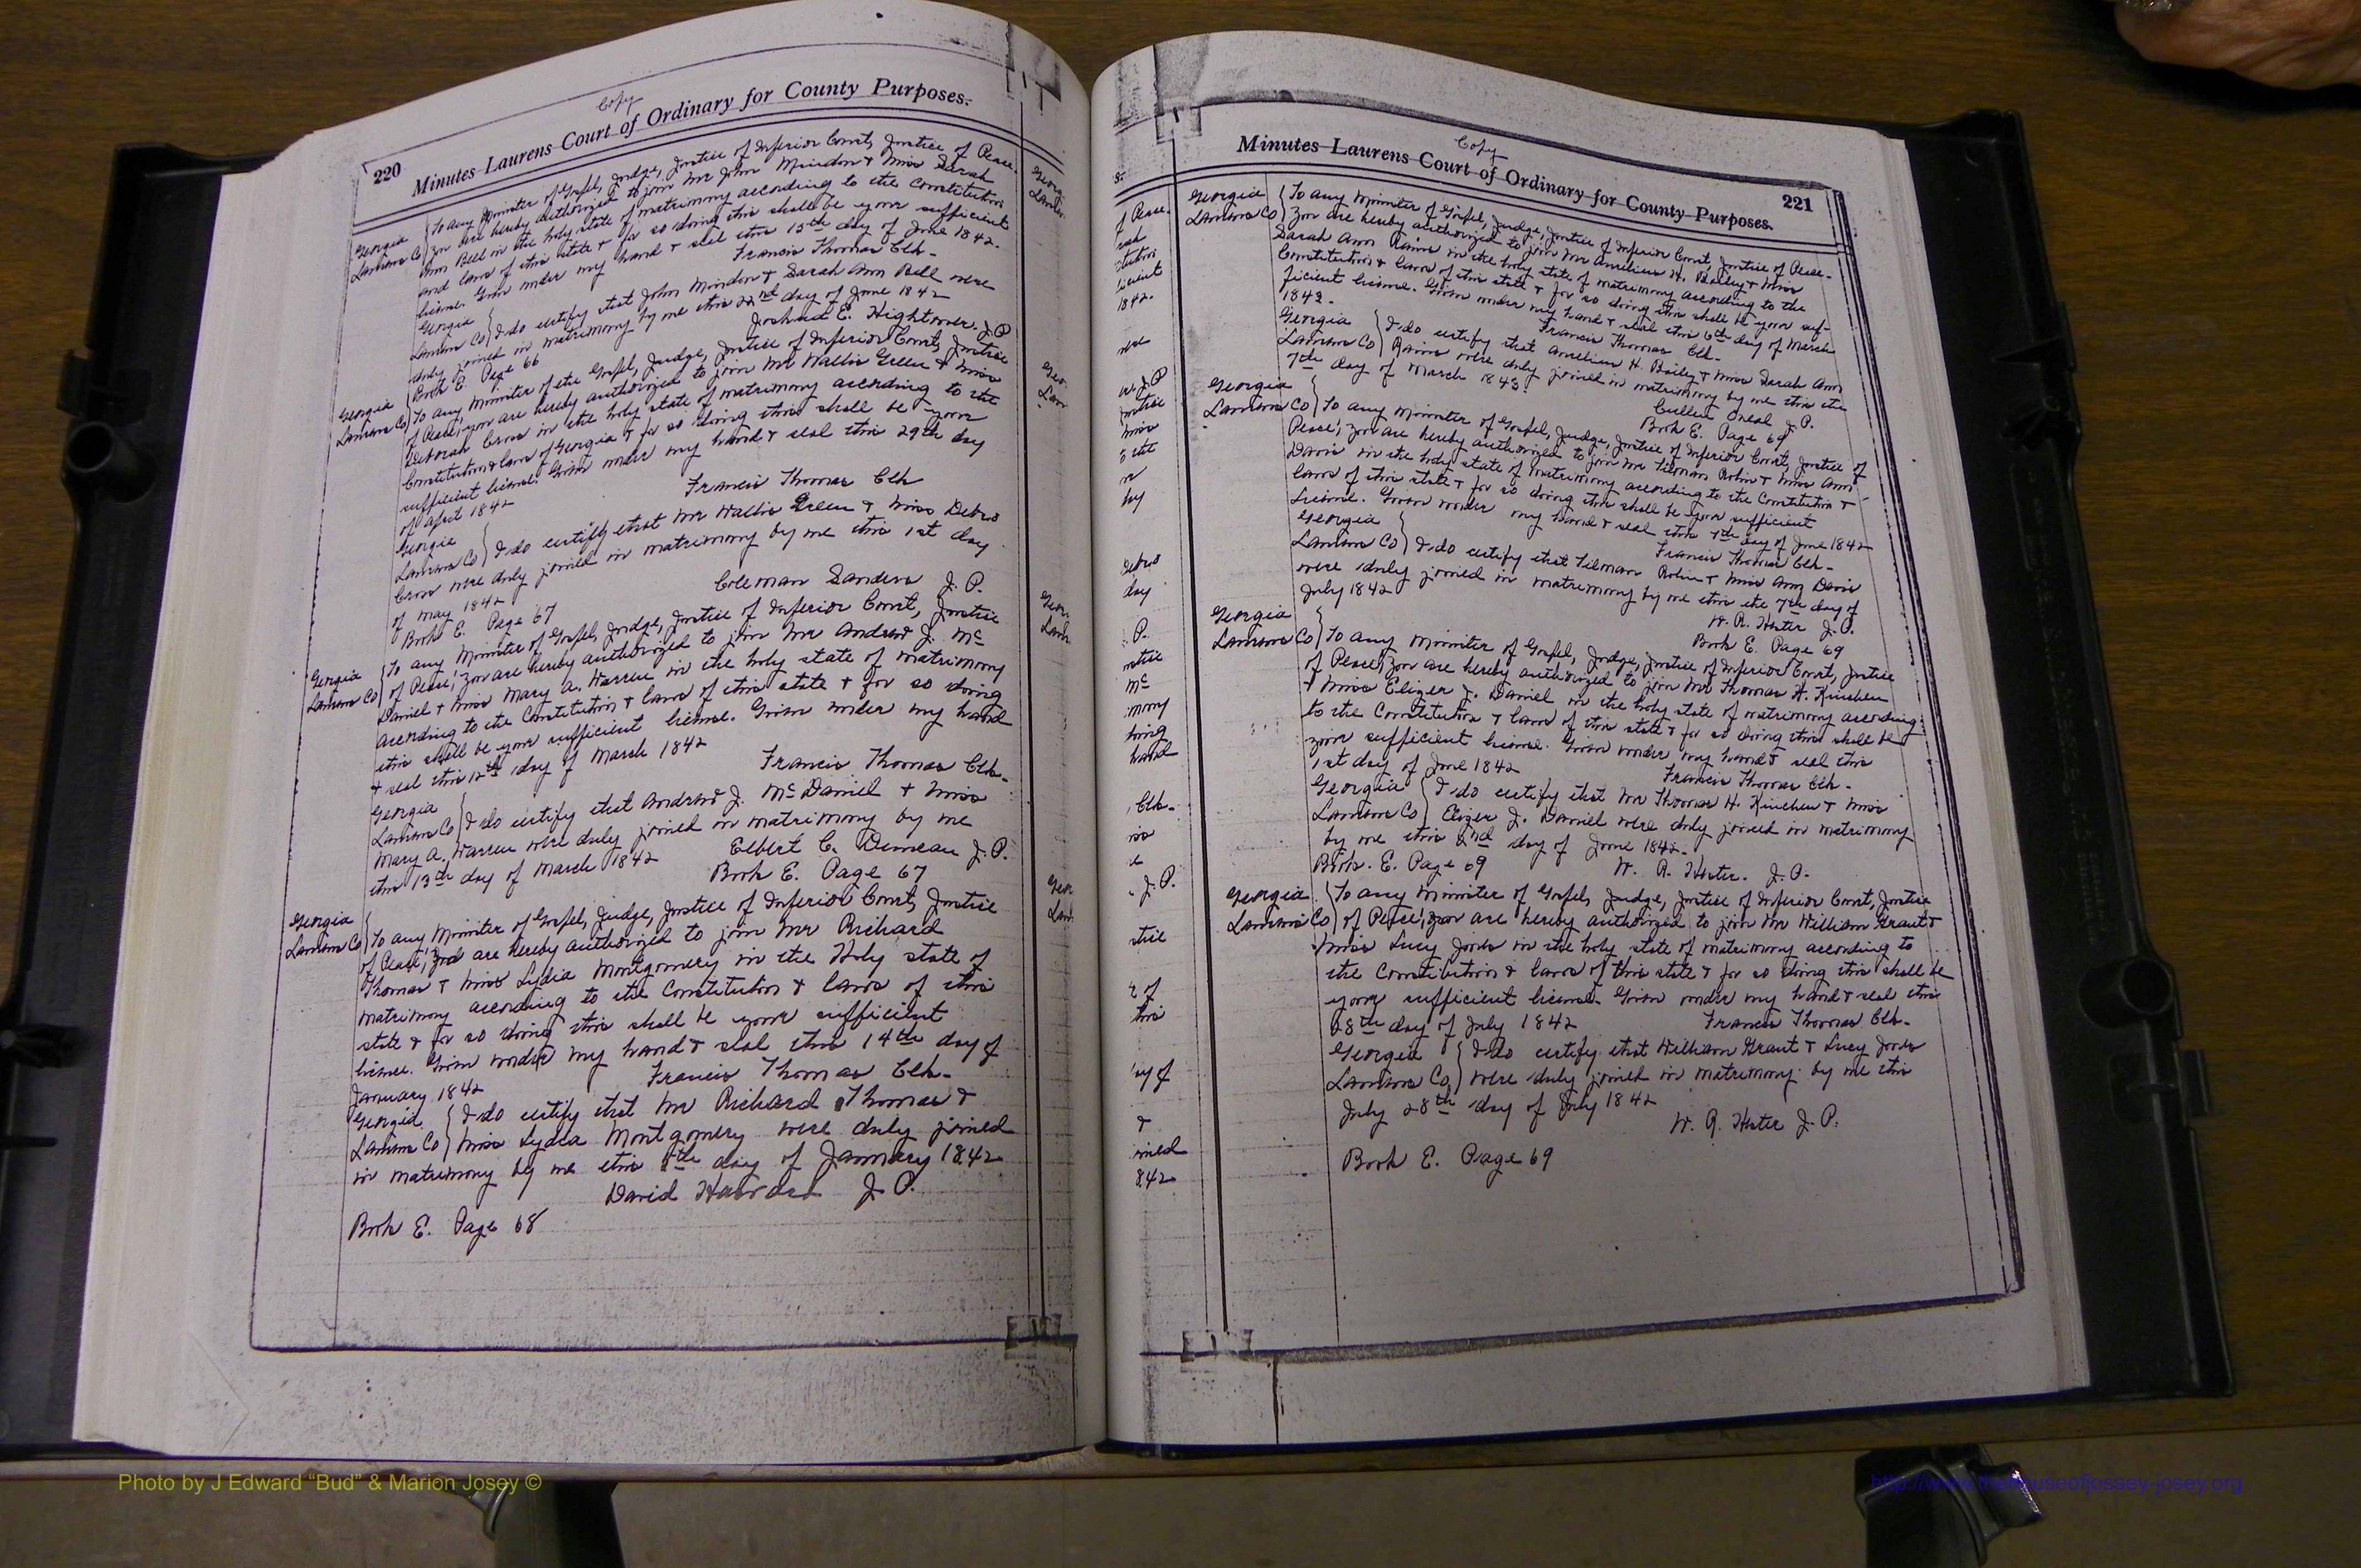 Copy
220 Minutes Laurens Court of Ordinary for County Purposes.
Georgia To any Minister of Gospel, Judge, Justice of Inferior Court, Justice of Peace.
Laurens Co You are hereby authorized to join Mr John & Miss Sarah
Ann Bell in the holy state of matrimony according to the Constitution
and laws of this state & for so doing this shall be your sufficient
license. Given under my hand & seal this 15th day of June 1842.
Francis Thomas Clk.
Georgia
Laurens Co I do certify that John & Sarah Ann Bell were
duly joined in matrimony by me this 22nd day of June 1842
Joshua E. Hightower. J P
Book E. Page 66
Georgia To any Minister of the Gospel, Judge, Justice of Inferior Court, Justice
Laurens Co of Peace, you are hereby authorized to join Mr Wallis Green & Miss
Deborah Cross in the holy state of matrimony according to the
Constitution & laws of Georgia & for so doing this shall be your
sufficient license. Given under my hand & seal this 29th day
of April 1842
Francis Thomas Clk
Georgia
Laurens Co I do certify that Mr Wallis Green & Miss Debro
Cross were duly joined in matrimony by me this 1st day
of May 1842
Coleman Sanders J. P.
Book E. Page 67
Georgia To any Minister of Gospel, Judge, Justice of Inferior Court, Justice
Laurens Co of Peace, you are hereby authorized to join Mr Andrew J. Mc
Daniel & Miss Mary A. Warren in the holy state of matrimony
according to the Constitution & laws of this state & for so doing
this shall be your sufficient license. Given under my hand
& seal this 12th day of March 1842
Francis Thomas Clk.
Georgia
Laurens Co I do certify that Andrew J. McDaniel & Miss
Mary A. Warren were duly joined in matrimony by me
this 13th day of March 1842 Elbert C. Duncan J. P.
Book E. Page 67
Georgia
Laurens Co To any Minister of Gospel, Judge, Justice of Inferior Court, Justice
of Peace, you are hereby authorized to join Mr Richard
Thomas & Miss Lydia Montgomery in the Holy state of
matrimony according to the Constitution & laws of this
state & for so doing this shall be your sufficient
license. Given under my hand & seal this 14th day of
January 1842 Francis Thomas Clk.
Georgia I do certify that Mr Richard Thomas &
Laurens Co Miss Lydia Montgomery were duly joined
in matrimony by me this day of January 1842
David J. P.
Book E. Page 68
Copy
Minutes Laurens Court of Ordinary for County Purposes. 221
Georgia To any Minister of Gospel, Judge, Justice of Inferior Court, Justice of Peace.
Laurens Co You are hereby authorized to join Mr Aurelius H. Bailey & Miss
Sarah Ann Rains in the holy state of matrimony according to the
Constitution & laws of this state & for so doing this shall be your suf-
ficient license. Given under my hand & seal this 6th day of March
1843. Francis Thomas Clk.
Georgia I do certify that Aurelius H. Bailey & Miss Sarah Ann
Laurens Co Rains were duly joined in matrimony by me this the
7th day of March 1843. Cullen Oneal J. P.
Book E. Page 69
Georgia
Laurens Co To any Minister of Gospel, Judge, Justice of Inferior Court, Justice of
Peace, you are hereby authorized to join Mr Tilman & Miss Ann
Davis in the holy state of matrimony according to the Constitution &
laws of this state & for so doing this shall be your sufficient
License. Given under my hand & seal this 7th day of June 1842
Georgia Francis Thomas Clk.
Laurens Co I do certify that Tilman & Miss Ann Davis
were duly joined in matrimony by me this the 7th day of
July 1842 W. R. Hester J. P.
Book E. Page 69
Georgia
Laurens Co To any Minister of Gospel, Judge, Justice of Inferior Court, Justice
of Peace, you are hereby authorized to join Mr Thomas H. Kinchen
& Miss Elizer J. Daniel in the holy state of matrimony according
to the Constitution & laws of this state & for so doing this shall be
your sufficient license. Given under my hand & seal this
1st day of June 1842 Francis Thomas Clk.
Georgia I do certify that Mr Thomas H. Kinchen & Miss
Laurens Co Elizer J. Daniel were duly joined in matrimony
by me this 2nd day of June 1842.
Book. E. Page 69 W. R. Hester. J. P.
Georgia To any Minister of Gospel, Judge, Justice of Inferior Court, Justice
Laurens Co of Peace, you are hereby authorized to join Mr William Grant &
Miss Lucy in the holy state of matrimony according to
the Constitution & laws of this state & for so doing this shall be
your sufficient license. Given under my hand & seal this
28th day of July 1842 Francis Thomas Clk.
Georgia I do certify that William Grant & Lucy
Laurens Co were duly joined in matrimony by me this
July 28th day of July 1842
W. R. Hester J. P.
Book E. Page 69
Photo by J Edward “Bud” & Marion Josey ©
http://www.thehouseofjossey-josey.org